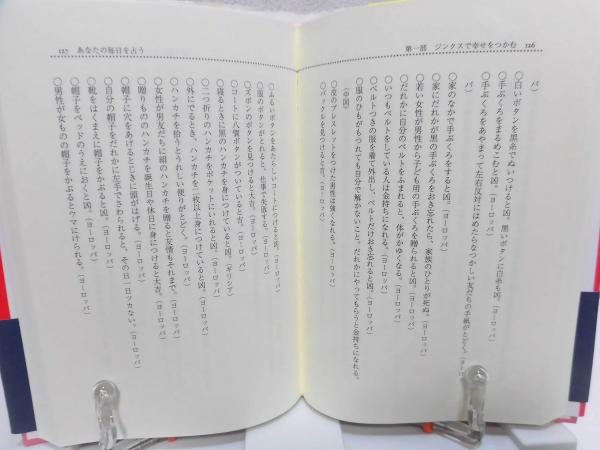 第一部　ジンクスで幸せをつかむ　126
パ）
○白いボタンを黒糸でぬいつけると凶。黒いボタンに白糸も凶。（ヨーロッパ）
○手ぶくろをまるめこむと凶。（ヨーロッパ）
○手ぶくろをあやまって左右反対にはめたらなつかしい友だちの手紙がとどく。（ヨーロッパ）
○家のなかで手ぶくろをすると凶。（ヨーロッパ）
○家にだれかが黒の手ぶくろをおき忘れたら、家族のひとりが死ぬ。（ヨーロッパ）
○若い女性が男性から子ども用の手ぶくろを贈られると凶。（ヨーロッパ）
○だれかに自分のベルトをふまれると、体がかゆくなる。（ヨーロッパ）
○いつもベルトをしている人は金持ちになる。（ヨーロッパ）
○ベルトつきの服を着て外出し、ベルトだけおき忘れると凶。（ヨーロッパ）
○服のひもがもつれても自分で解かないこと。だれかにやってもらうと金持ちになれる。
（中国）
○皮のブレスレットをつけた男性は強くなれる。（ヨーロッパ）
○バックルを見つけると吉。（ヨーロッパ）
127　あなたの毎日を占う
○ふるいボタンをあたらしいコートにつけると凶。（ヨーロッパ）
○服のボタンがとれると、仕事で失敗する。（ヨーロッパ）
○ズボンのボタンを見つけると大吉。（ヨーロッパ）
○コートに八個ボタンがついていると吉。（ヨーロッパ）
○寝るときに黒のハンカチを身につけていると凶。（ギリシア）
○二つ折りのハンカチをポケットにいれると凶。（ヨーロッパ）
○外にでるとき、ハンカチを二枚以上身につけていると凶。（ヨーロッパ）
○ハンカチを拾うとうれしい便りがとどく。（ヨーロッパ）
○女性が男友だちに絹のハンカチを贈ると友情もそれまで。（ヨーロッパ）
○贈りもののハンカチを誕生日や休日に身につけると大吉。（ヨーロッパ）
○帽子に穴をあけるとじきに頭がはげる。（ヨーロッパ）
○自分の帽子をだれかに左手でさわられると、その日一日ツカない。（ヨーロッパ）
○靴をはくまえに帽子をかぶると凶。（ヨーロッパ）
○帽子をベッドのうえにおくと凶。（ヨーロッパ）
○男性が女ものの帽子をかぶるとウマにけられる。（ヨーロッパ）